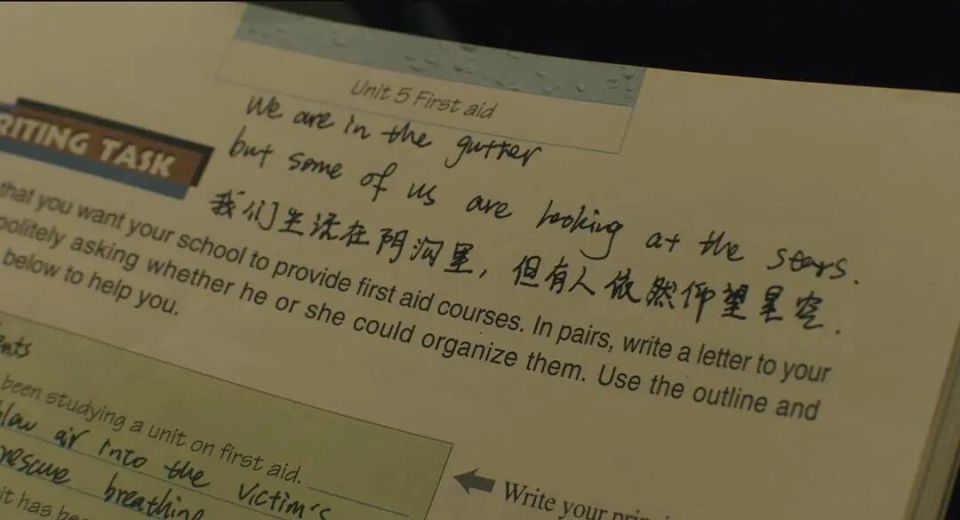 Unit 5 First aid
We are in the gutter
but some of us are looking at the stars.
我们生活在阴沟里，但有人依然仰望星空.
RITING TASK
that you want your school to provide first aid courses. In pairs, write a letter to your
politely asking whether he or she could organize them. Use the outline and
below to help you.
ents
been studying a unit on first aid.
blow air into the victim's
rescue breathing
it has bee
Write your